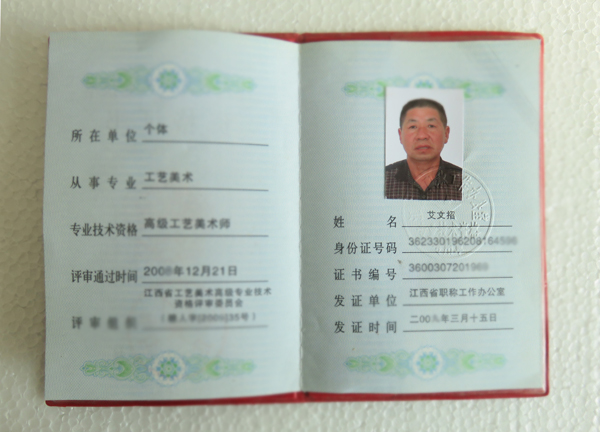 所在单位 个体
从事专业 工艺美术
专业技术资格 高级工艺美术师
评审通过时间 2008年12月21日
江西省工艺美术高级专业技术
资格评审委员会
评审
姓名 艾文招
身份证号码
证书编号
发证单位 江西省职称工作办公室
发证时间 二00 年三月十五日